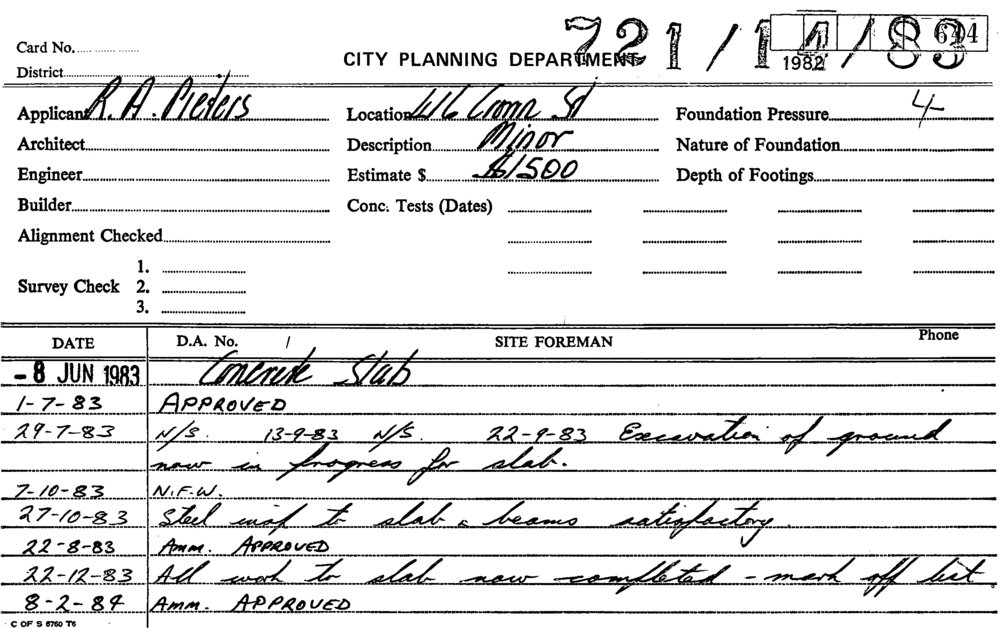 721/14/83
644
1982
Card No.
CITY PLANNING DEPARTMENT
District
Applicant R. A. Pieters
Location 416 Crown St
Foundation Pressure 4
Architect
Description Minor
Nature of Foundation
Engineer
Estimate $ $1500
Depth of Footings
Builder
Conc. Tests (Dates)
Alignment Checked
1.
Survey Check 2.
3.
DATE D.A. No. / SITE FOREMAN Phone
- 8 JUN 1983 Concrete Slab
1-7-83 APPROVED
29-7-83 N/S. 13-9-83 N/S. 22-9-83 Excavation of ground
now in progress for slab.
7-10-83 N.F.W.
27-10-83 Steel insp to slab & beams satisfactory.
22-8-83 Amm. APPROVED
22-12-83 All work to slab now completed - mark off list
8-2-84 Amm. APPROVED
C OF S 6760 T6